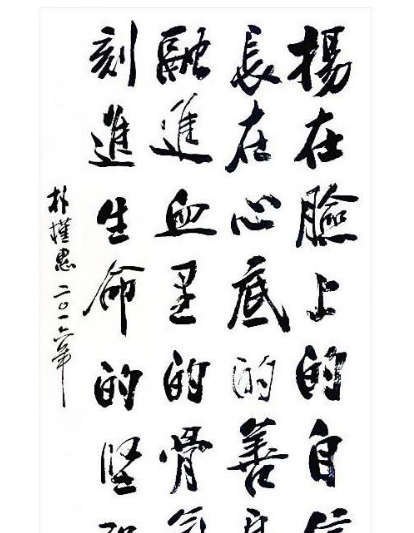 揚在臉上的自信
長在心底的善良
融進血里的骨氣
刻進生命的堅
朴槿惠二〇一六年